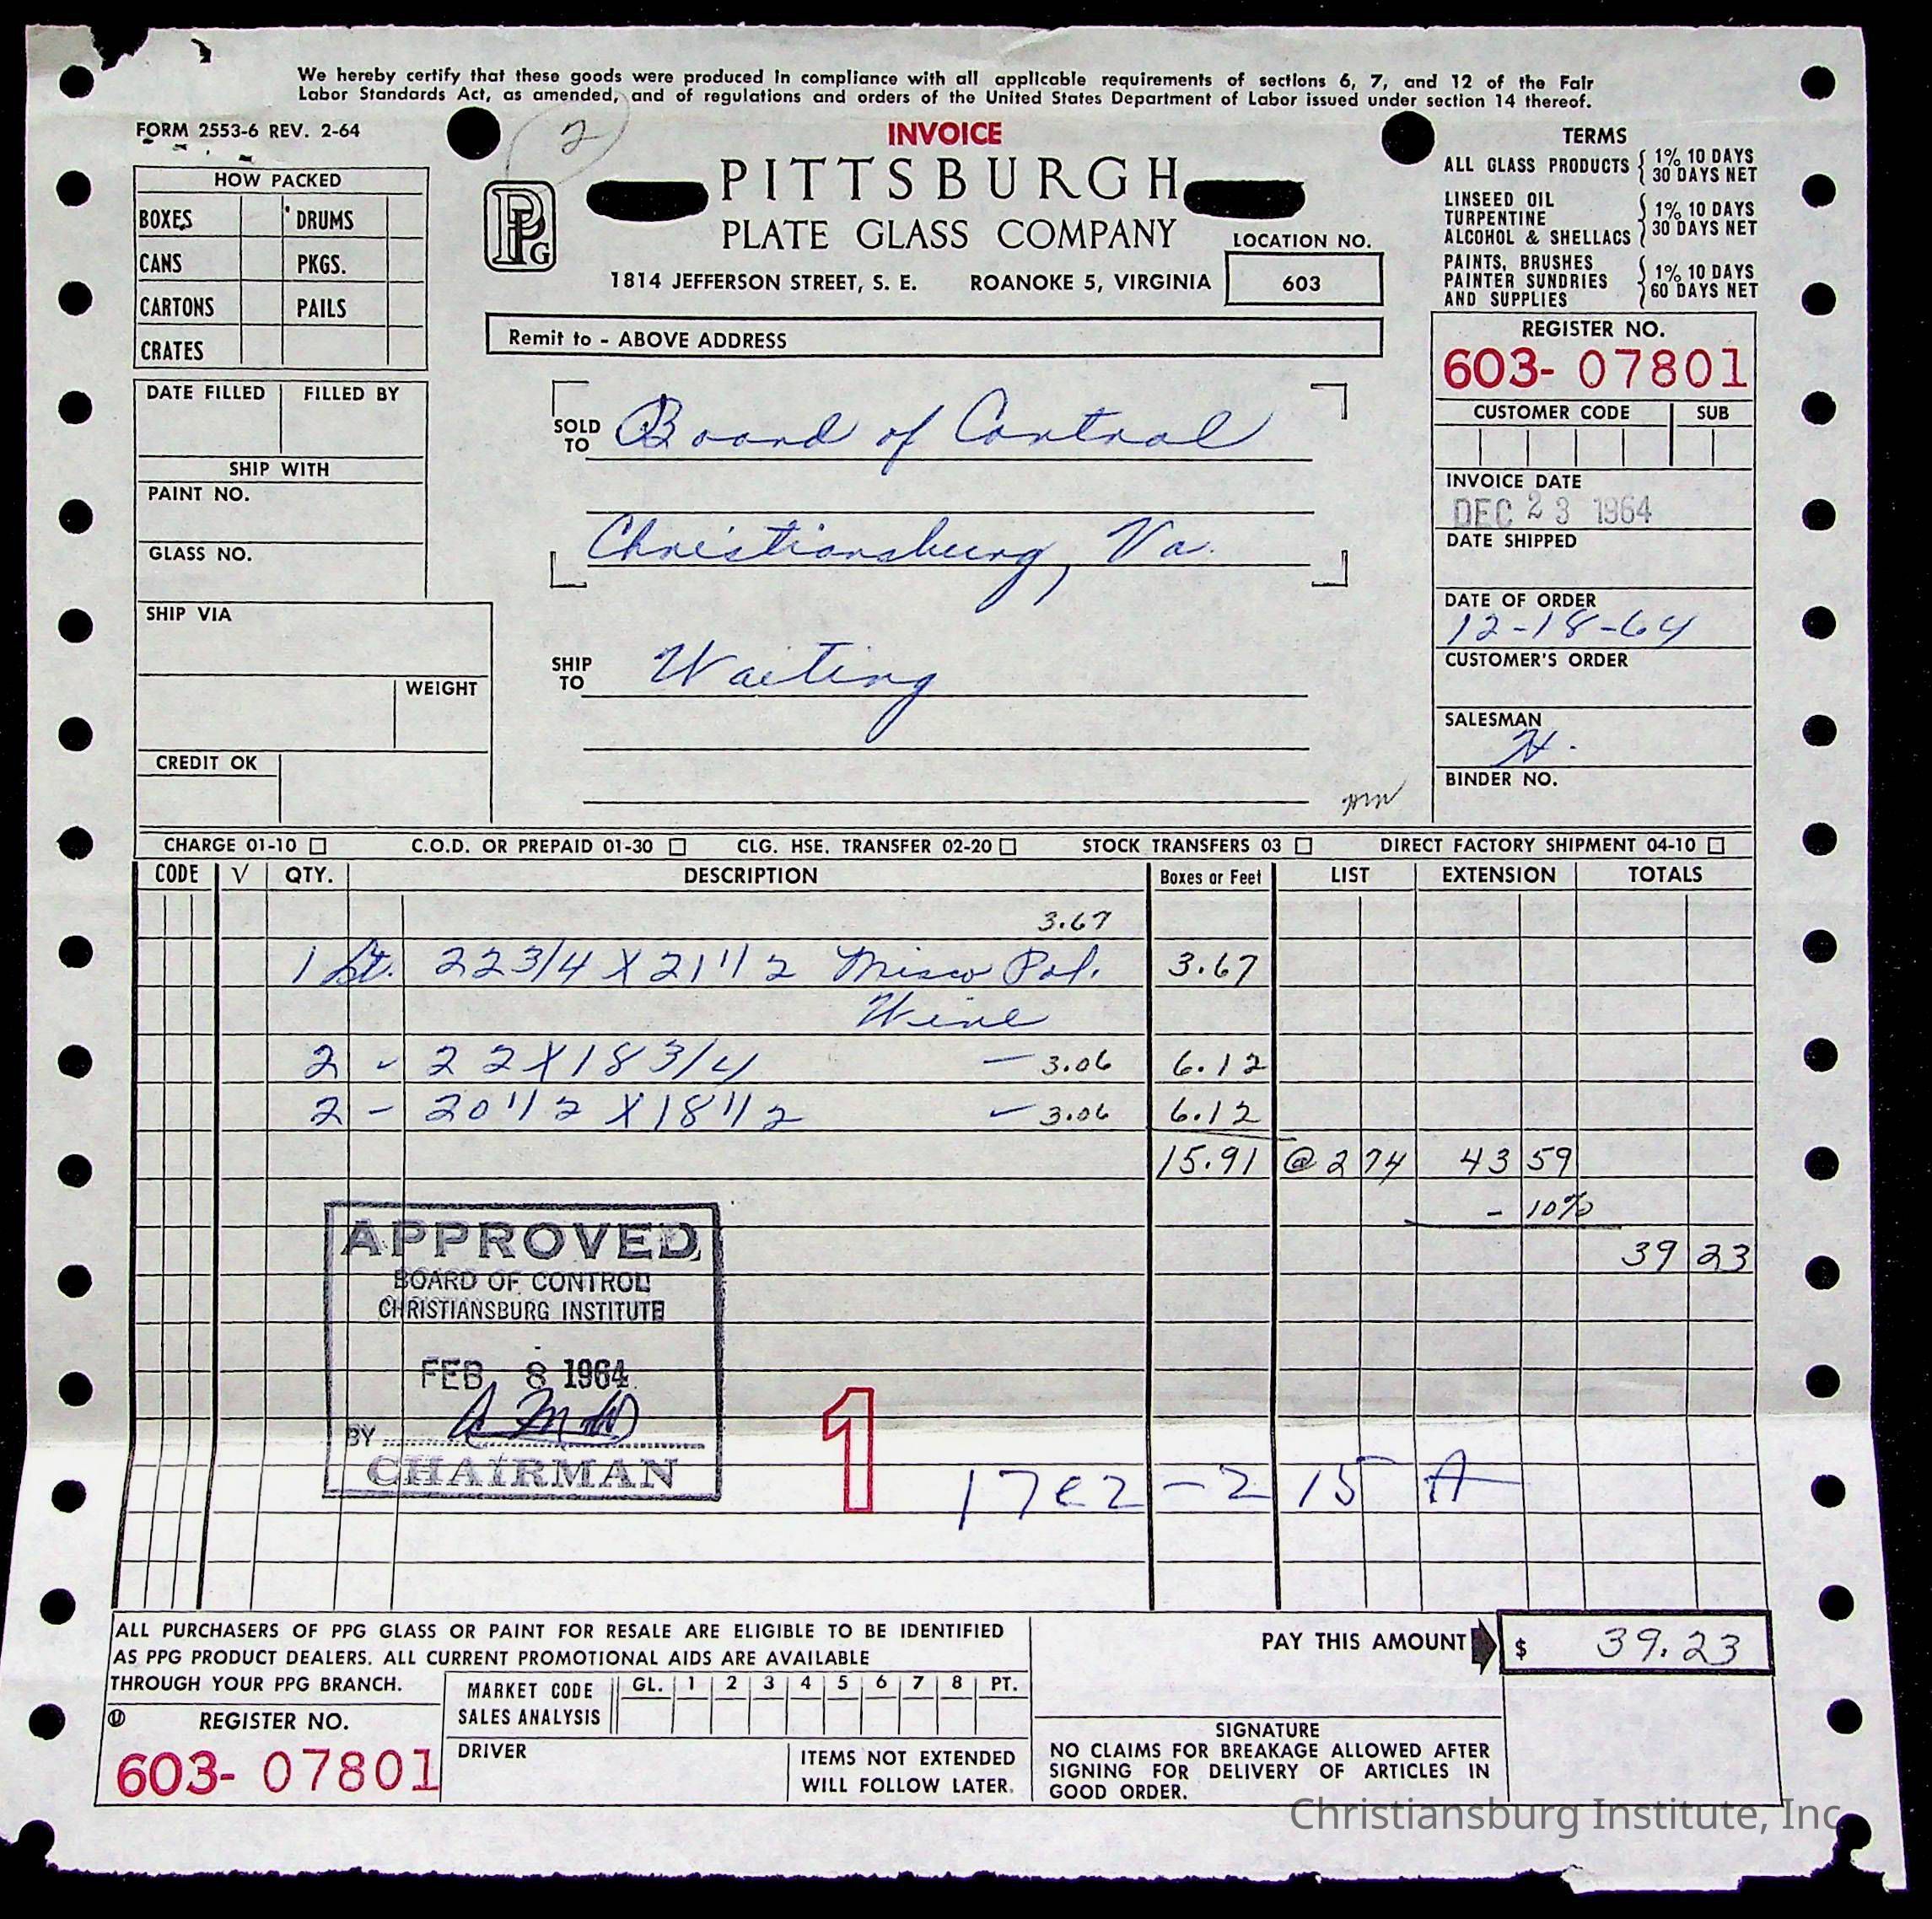 We hereby certify that these goods were produced in compliance with all applicable requirements of sections 6, 7, and 12 of the Fair
Labor Standards Act, as amended, and of regulations and orders of the United States Department of Labor issued under section 14 thereof.
FORM 2553-6 REV. 2-64
2
INVOICE
PITTSBURGH
PLATE GLASS COMPANY
PPG
1814 JEFFERSON STREET, S. E. ROANOKE 5, VIRGINIA
LOCATION NO.
603
Remit to - ABOVE ADDRESS
TERMS
ALL GLASS PRODUCTS { 1% 10 DAYS
30 DAYS NET
LINSEED OIL
TURPENTINE
ALCOHOL & SHELLACS { 1% 10 DAYS
30 DAYS NET
PAINTS, BRUSHES
PAINTER SUNDRIES
AND SUPPLIES { 1% 10 DAYS
60 DAYS NET
HOW PACKED
BOXES DRUMS
CANS PKGS.
CARTONS PAILS
CRATES
DATE FILLED FILLED BY
SHIP WITH
PAINT NO.
GLASS NO.
SHIP VIA
WEIGHT
CREDIT OK
SOLD TO Board of Control
Christiansburg, Va.
SHIP TO Waiting
REGISTER NO.
603- 07801
CUSTOMER CODE SUB
INVOICE DATE
DEC 23 1964
DATE SHIPPED
DATE OF ORDER
12-18-64
CUSTOMER'S ORDER
SALESMAN
H.
BINDER NO.
CHARGE 01-10 C.O.D. OR PREPAID 01-30 CLG. HSE. TRANSFER 02-20 STOCK TRANSFERS 03 DIRECT FACTORY SHIPMENT 04-10
CODE √ QTY. DESCRIPTION Boxes or Feet LIST EXTENSION TOTALS
3.67
1 Lt. 22 3/4 X 21 1/2 Misco Pol. 3.67
Wire
2 - 22 X 18 3/4 - 3.06 6.12
2 - 20 1/2 X 18 1/2 - 3.06 6.12
15.91 @ 2 74 43 59
- 10%
39 23
APPROVED
BOARD OF CONTROL
CHRISTIANSBURG INSTITUTE
FEB 8 1964
BY
CHAIRMAN
1
17e2-215 A
ALL PURCHASERS OF PPG GLASS OR PAINT FOR RESALE ARE ELIGIBLE TO BE IDENTIFIED
AS PPG PRODUCT DEALERS. ALL CURRENT PROMOTIONAL AIDS ARE AVAILABLE
THROUGH YOUR PPG BRANCH.
PAY THIS AMOUNT $ 39.23
MARKET CODE
SALES ANALYSIS
GL. 1 2 3 4 5 6 7 8 PT.
REGISTER NO.
603- 07801
DRIVER
ITEMS NOT EXTENDED
WILL FOLLOW LATER.
SIGNATURE
NO CLAIMS FOR BREAKAGE ALLOWED AFTER
SIGNING FOR DELIVERY OF ARTICLES IN
GOOD ORDER.
Christiansburg Institute, Inc.